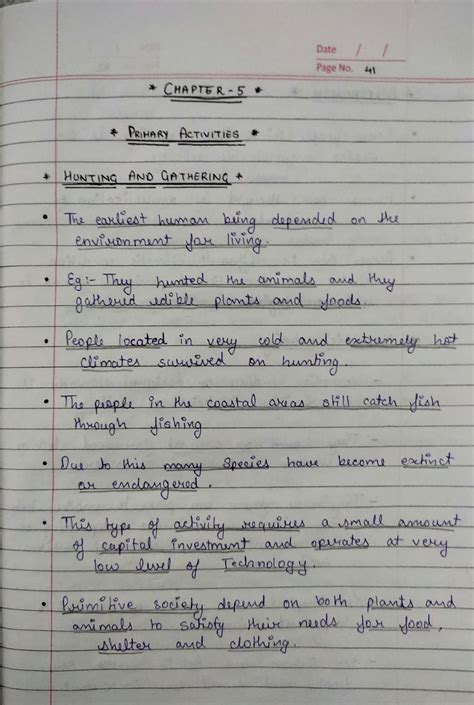 Date / /
Page No. 41
* CHAPTER-5 *
* PRIMARY ACTIVITIES *
* HUNTING AND GATHERING *
• The earliest human being depended on the
environment for living.
• Eg:- They hunted the animals and they
gathered edible plants and foods.
• People located in very cold and extremely hot
climates survived on hunting.
• The people in the coastal areas still catch fish
through fishing
• Due to this many species have become extinct
or endangered.
• This type of activity requires a small amount
of capital investment and operates at very
low level of Technology.
• Primitive society depend on both plants and
animals to satisfy their needs for food,
shelter and clothing.